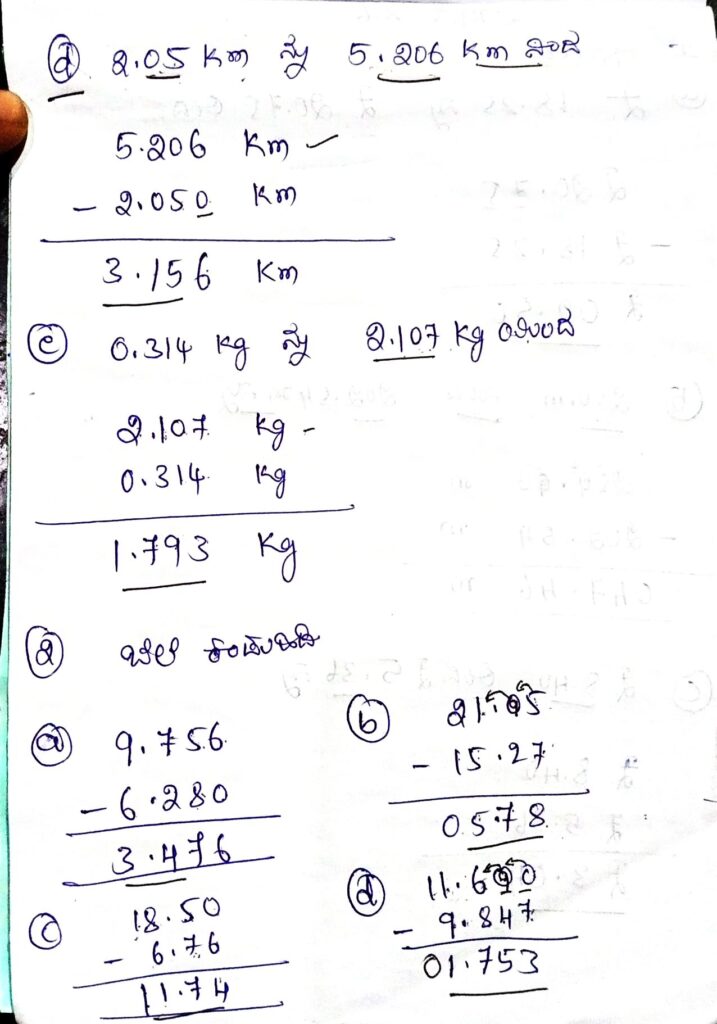 d 2.05 Km ನ್ನು 5.206 Km ನಿಂದ
5.206 Km
- 2.050 Km
3.156 Km
e 0.314 kg ನ್ನು 2.107 kg ಯಿಂದ
2.107 kg -
0.314 kg
1.793 Kg
2 ಬೆಲೆ ಕಂಡುಹಿಡಿ
a 9.756
- 6.280
3.476
b 21.05
- 15.27
05.78
c 18.50
- 6.76
11.74
d 11.600
- 9.847
01.753